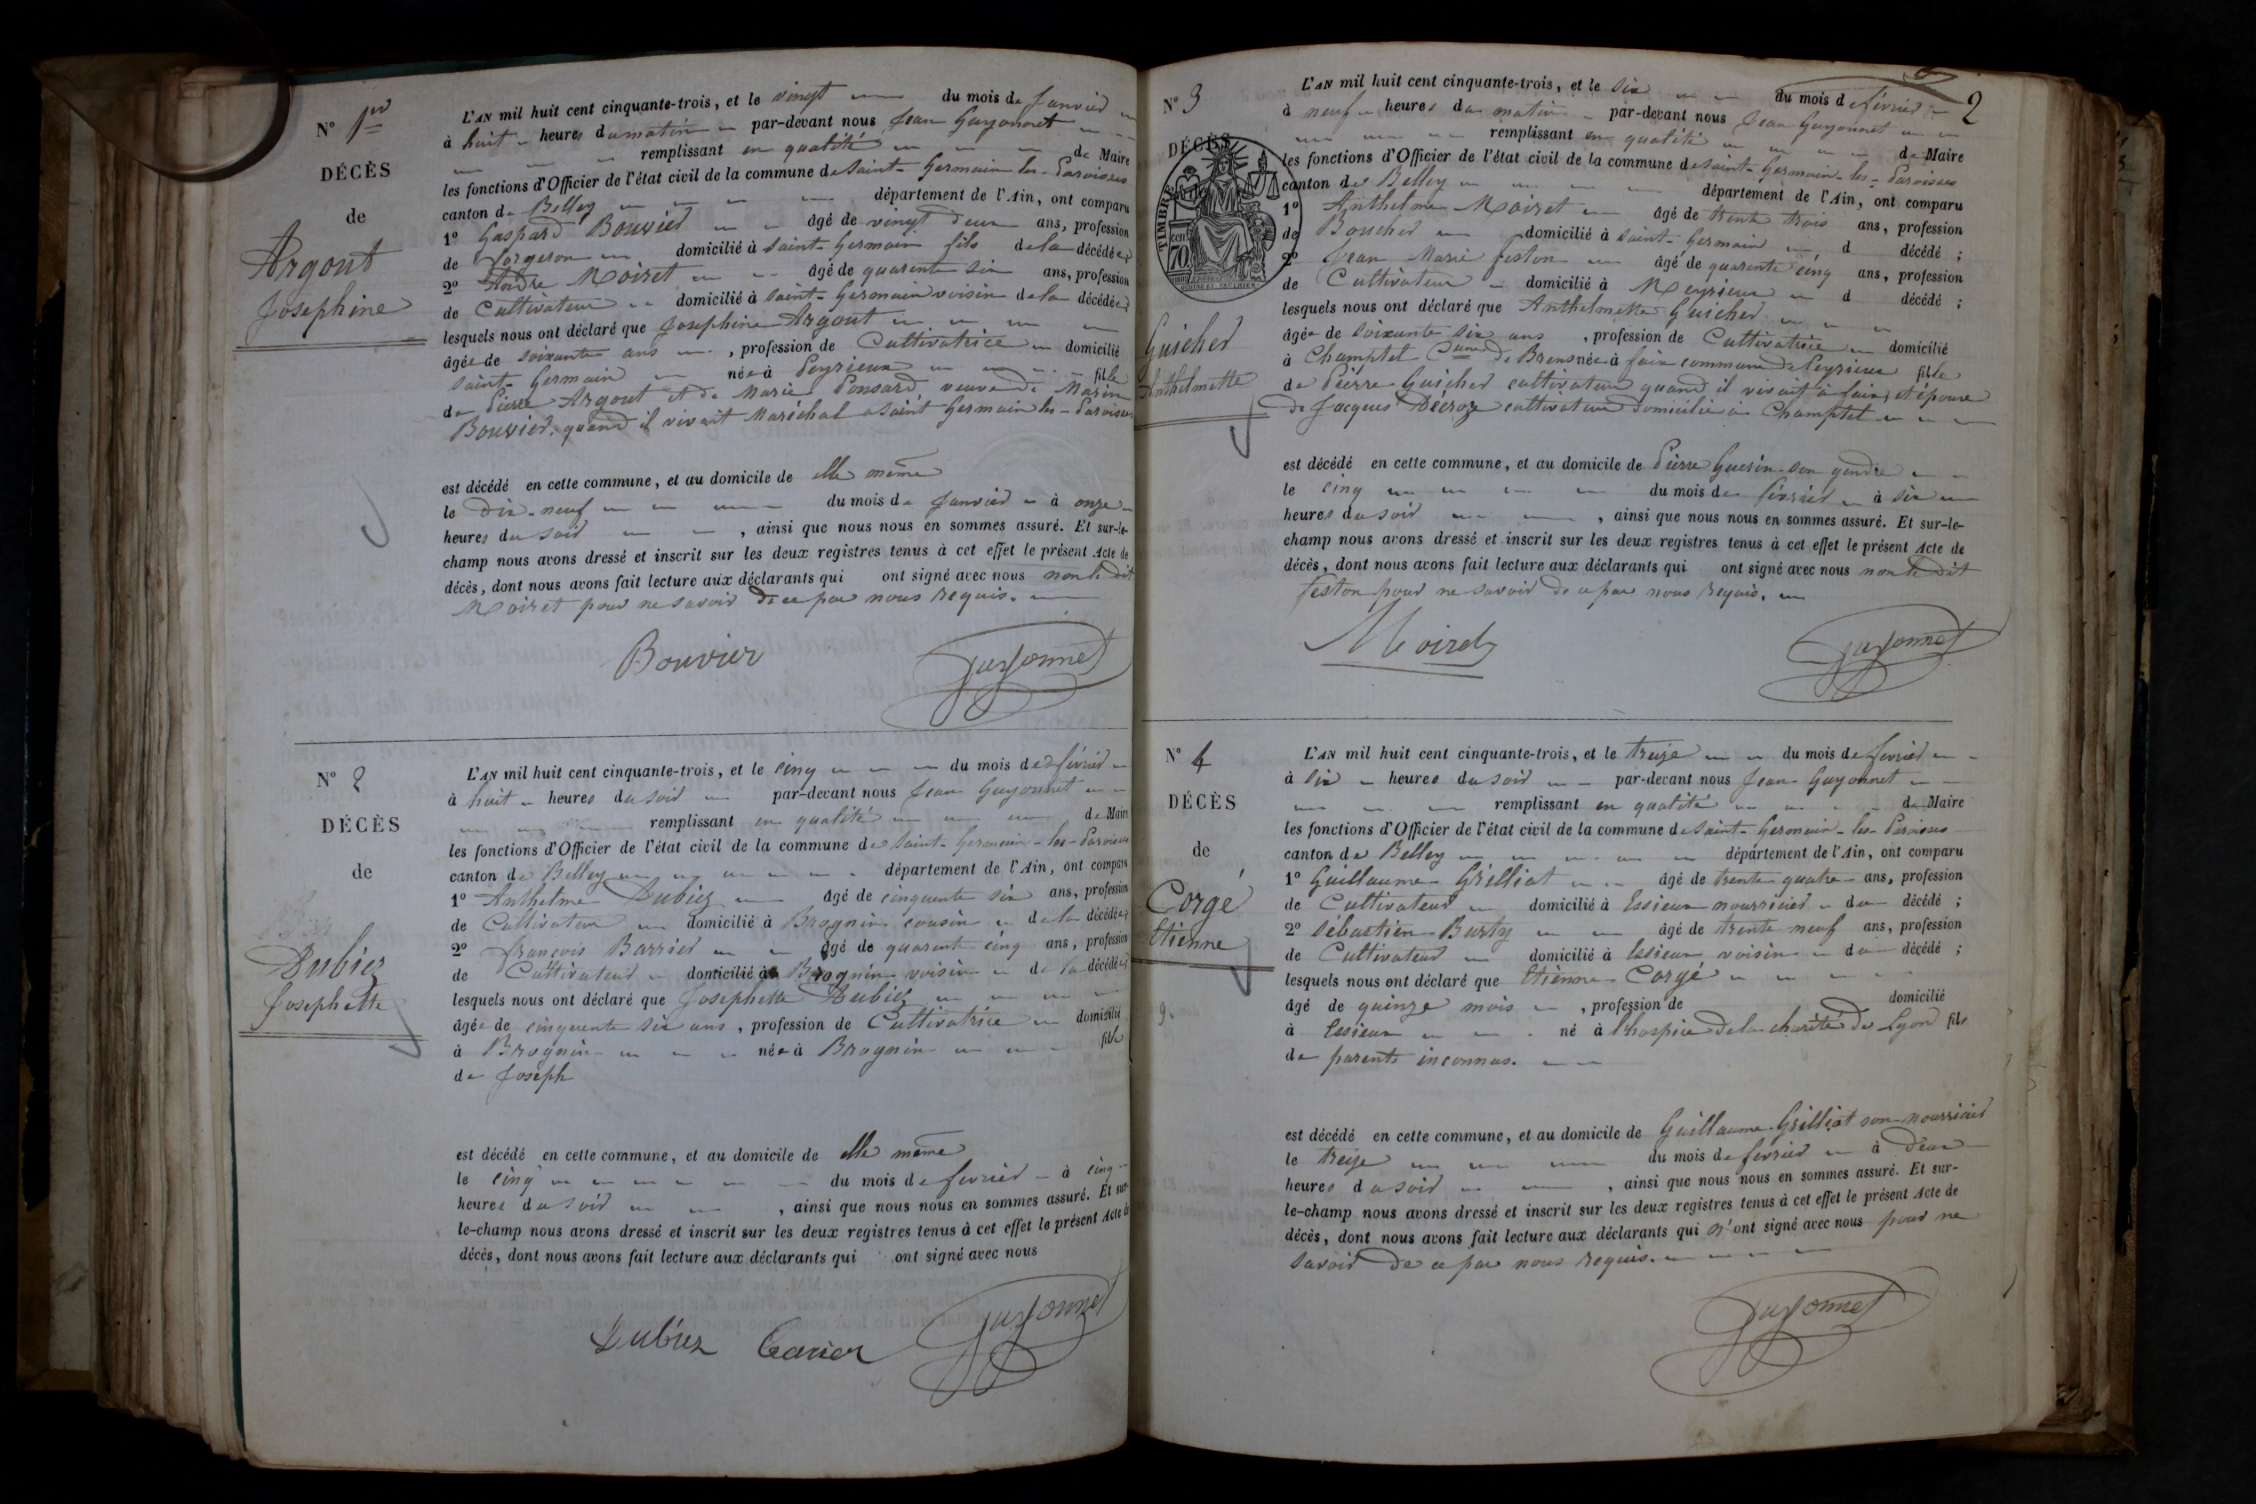 N° 1er
DÉCÈS
de
Argout
Josephine
L'AN mil huit cent cinquante-trois, et le vingt du mois de Janvier
à huit heures du matin par-devant nous Jean Guyonnet
remplissant en qualité de Maire
les fonctions d'Officier de l'état civil de la commune de Saint-Germain-les-Paroisses
canton de Belley département de l'Ain, ont comparu
1° Gaspard Bouvier âgé de vingt deux ans, profession
de forgeron domicilié à Saint-Germain fils de la décédée;
2° André Moiret âgé de quarente six ans, profession
de Cultivateur domicilié à Saint-Germain voisin de la décédée;
lesquels nous ont déclaré que Josephine Argout
âgée de soixante ans, profession de Cultivatrice domicilié
Saint-Germain née à Peyrieux fille
de Pierre Argout et de Marie Ponsard veuve de Marin
Bouvier, quand il vivait Maréchal a Saint Germain les-Paroisses
est décédé en cette commune, et au domicile de elle même
le dix-neuf du mois de Janvier à onze
heures du soir, ainsi que nous nous en sommes assuré. Et sur-le-
champ nous avons dressé et inscrit sur les deux registres tenus à cet effet le présent Acte de
décès, dont nous avons fait lecture aux déclarants qui ont signé avec nous non le dit
Moiret pour ne savoir de ce par nous requis.
Bouvier Guyonnet
N° 2
DÉCÈS
de
Dubiez
Josephette
L'AN mil huit cent cinquante-trois, et le cinq du mois de février
à huit heures du soir par-devant nous Jean Guyonnet
remplissant en qualité de Maire
les fonctions d'Officier de l'état civil de la commune de Saint-Germain-les-Paroisses
canton de Belley département de l'Ain, ont comparu
1° Anthelme Dubiez âgé de cinquante six ans, profession
de Cultivateur domicilié à Brognin cousin de la décédée;
2° françois Barrier âgé de quarent cinq ans, profession
de Cultivateur domicilié à Brognin voisin de la décédée;
lesquels nous ont déclaré que Josephette Dubiez
âgée de cinquente six ans, profession de Cultivatrice domicilié
à Brognin née à Brognin fille
de Joseph
est décédé en cette commune, et au domicile de elle même
le cinq du mois de fevrier à cinq
heures du soir, ainsi que nous nous en sommes assuré. Et sur-
le-champ nous avons dressé et inscrit sur les deux registres tenus à cet effet le présent Acte de
décès, dont nous avons fait lecture aux déclarants qui ont signé avec nous
Dubiez Guyonnet
2
N° 3
DÉCÈS
TIMBRE
70
Guicher
Anthelmette
L'AN mil huit cent cinquante-trois, et le six du mois de février
à neuf heures du matin par-devant nous Jean Guyonnet
remplissant en qualité de Maire
les fonctions d'Officier de l'état civil de la commune de Saint-Germain-les-Paroisses
canton de Belley département de l'Ain, ont comparu
1° Anthelme Moiret âgé de trente trois ans, profession
de Boucher domicilié à Saint-Germain d décédé;
2° Jean Marie feston âgé de quarente cinq ans, profession
de Cultivateur domicilié à Meyrieux d décédé;
lesquels nous ont déclaré que Anthelmette Guicher
âgée de soixante six ans, profession de Cultivatrice domicilié
à Champtel Cune de Brens née à fain commune de Peyrieux fille
de Pierre Guicher cultivateur quand il vivait à fain, et épouse
de Jacques Décroze cultivateur domicilié à Champtel
est décédé en cette commune, et au domicile de Pierre Guerin son gendre
le cinq du mois de février à six
heures du soir, ainsi que nous nous en sommes assuré. Et sur-le-
champ nous avons dressé et inscrit sur les deux registres tenus à cet effet le présent Acte de
décès, dont nous avons fait lecture aux déclarants qui ont signé avec nous non le dit
feston pour ne savoir de ce par nous requis.
Moiret Guyonnet
N° 4
DÉCÈS
de
Corgé
Etienne
L'AN mil huit cent cinquante-trois, et le treize du mois de fevrier
à six heures du soir par-devant nous Jean Guyonnet
remplissant en qualité de Maire
les fonctions d'Officier de l'état civil de la commune de Saint-Germain-les-Paroisses
canton de Belley département de l'Ain, ont comparu
1° Guillaume Grilliat âgé de trente quatre ans, profession
de Cultivateur domicilié à Essieux nourricier du décédé;
2° Sébastien Burty âgé de trente neuf ans, profession
de Cultivateur domicilié à Essieux voisin du décédé;
lesquels nous ont déclaré que Etienne Corgé
âgé de quinze mois, profession de domicilié
à Essieux né à l'hospice de la charité de Lyon fils
de parents inconnus.
est décédé en cette commune, et au domicile de Guillaume Grilliat son nourricier
le treize du mois de fevrier à deux
heures du soir, ainsi que nous nous en sommes assuré. Et sur-
le-champ nous avons dressé et inscrit sur les deux registres tenus à cet effet le présent Acte de
décès, dont nous avons fait lecture aux déclarants qui n'ont signé avec nous pour ne
savoir de ce par nous requis.
Guyonnet